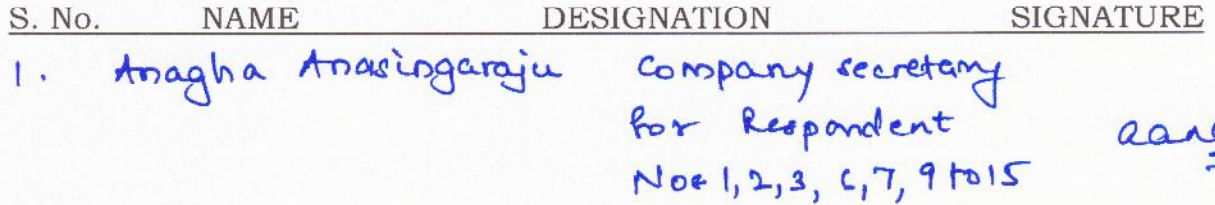 S. No. NAME DESIGNATION SIGNATURE
1. Anagha Anasingaraju Company secretary
for Respondent
Nos 1, 2, 3, 6, 7, 9 to 15